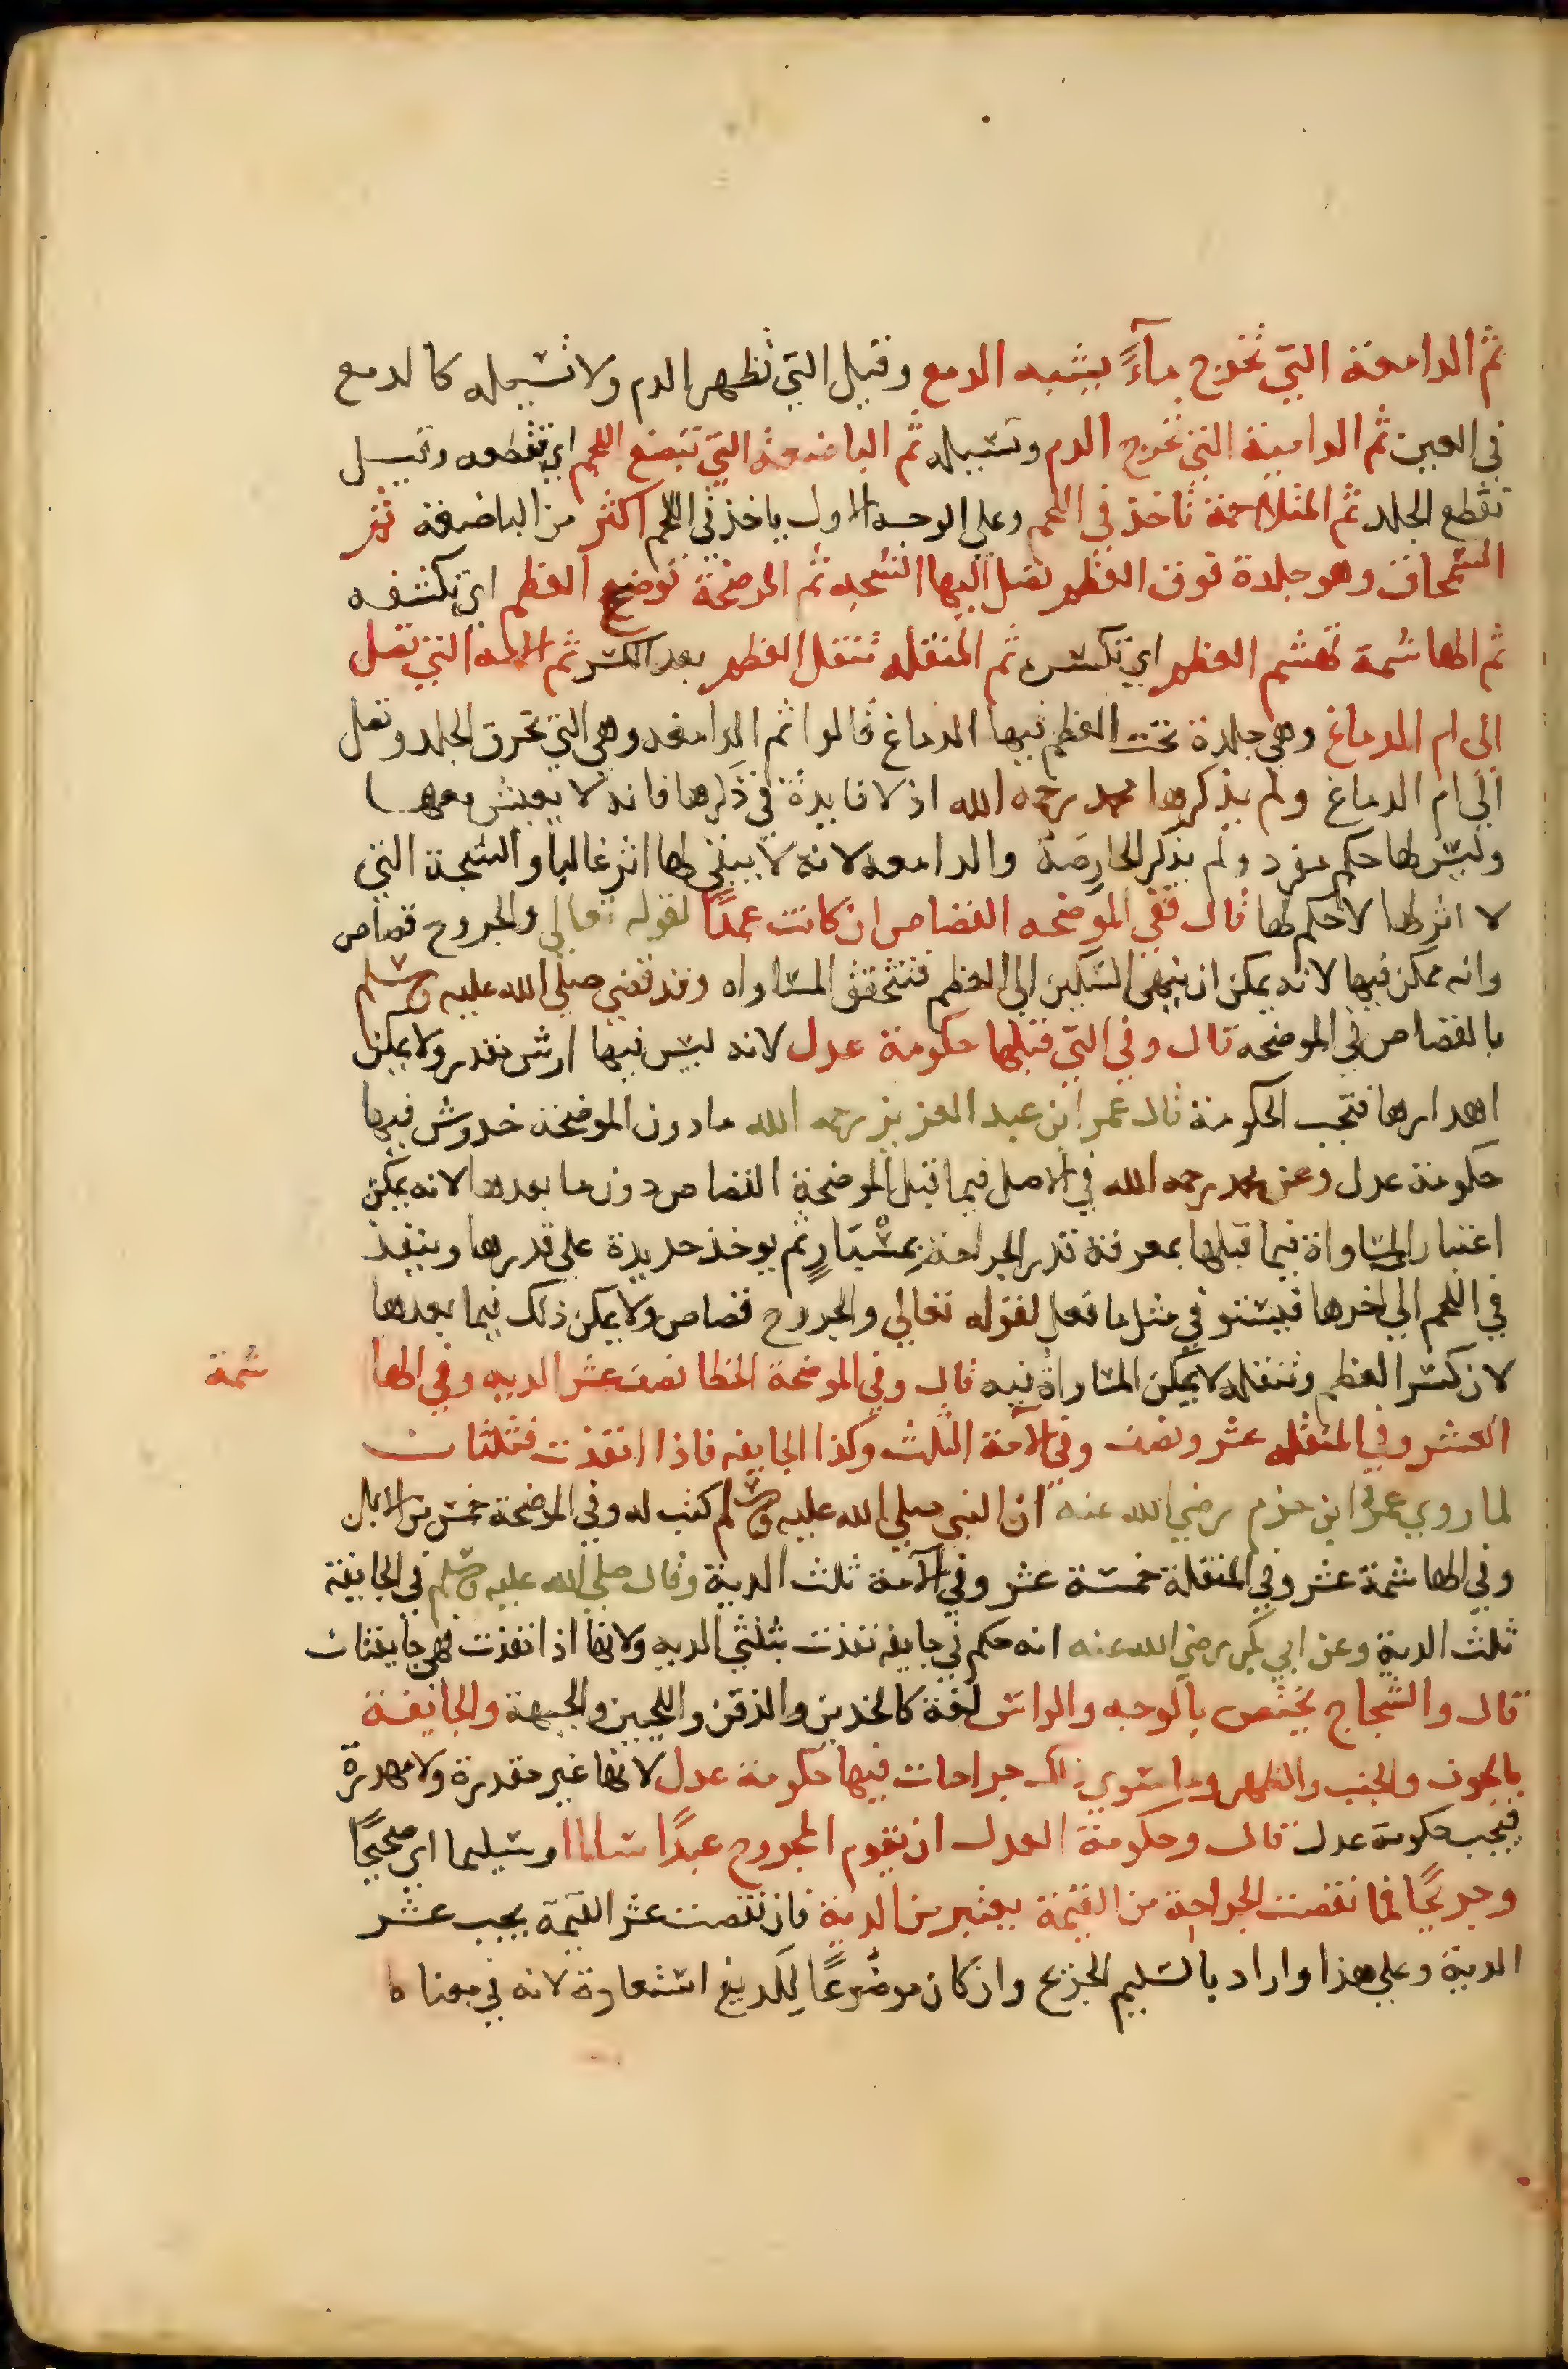 ثم الدامعة التي تخرج مآءً يشبه الدمع وقيل التي تظهر الدم ولا تسيله كالدمع
في العين ثم الدامية التي تخرج الدم وتسيله ثم الباضعة التي تبضع اللحم اي تقطعه وقيل
تقطع الجلد ثم المتلاحمة تاخذ في اللحم وعلى الوجه الاول ياخذ في اللحم اكثر من الباضعة ثم
السمحاق وهو جلدة فوق العظم تصل اليها الشجه ثم الموضحة توضح العظم اي تكشفه
ثم الهاشمة تهشم العظم اي تكسره ثم المنقله تنقل العظم بعد الكسر ثم الامه التي تصل
الى ام الدماغ وهي جلدة تحت العظم فيها الدماغ قالوا ثم الدامغه وهي التي تخرق الجلد وتصل
الى ام الدماغ ولم يذكرها محمد رحمه الله اذ لا فايدة في ذكرها فانه لا يعيش معها
وليس لها حكم مفرد ولم يذكر الحارصة والدامعه لانه لا يبقى لها اثر غالبا والشجة التي
لا اثر لها لا حكم لها قال ففي الموضحه القصاص ان كانت عمدًا لقوله تعالى والجروح قصاص
وانه ممكن فيها لانه يمكن ان ينهى السكين الى العظم فتتحقق المساواه وقد قضى صلى الله عليه وسلم
بالقصاص في الموضحه قال وفي التي قبلها حكومة عدل لانه ليس فيها ارش مقدر ولا يمكن
اهدارها فتجب الحكومة قال عمر ابن عبد العزيز رحمه الله ما دون الموضحة خدوش فيها
حكومة عدل وعن محمد رحمه الله في الاصل فيما قبل الموضحة القصاص دون ما بعدها لانه يمكن
اعتبار المساواة فيما قبلها بمعرفة قدر الجراحة بمسْبَارٍ ثم يوخذ حديدة على قدرها وينفذ
في اللحم الى اخرها فيستوفي مثل ما فعل لقوله تعالى والجروح قصاص ولا يمكن ذلك فيما بعدها
لان كسر العظم وتنقله لا يمكن المساواة فيه قال وفي الموضحة الخطا نصف عشر الديه وفي الها شمة
العشر وفي المنقله عشر ونصف وفي الآمة الثلث وكذا الجايفه فاذا انفذت فثلثان
لما روي عمرو ابن حزم رضي الله عنه ان النبي صلى الله عليه وسلم كتب له وفي الموضحة خمس من الابل
وفي الهاشمة عشر وفي المنقلة خمسة عشر وفي الآمة ثلث الدية وقال صلى الله عليه وسلم في الجايفة
ثلث الدية وعن ابي بكر رضي الله عنه انه حكم في جايفه نفذت بثلثي الديه ولانها اذا نفذت فهي جايفتان
قال والشجاج يختص بالوجه والراس لغة كالخدين والذقن واللحيين والجبهة والجايفة
بالجوف والجنب والظهر وما سوي ذلك جراحات فيها حكومة عدل لانها غير مقدرة ولا مهدرة
فيجب حكومة عدل قال وحكومة العدل ان يقوم المجروح عبدًا سالما وسليما اي صحيحًا
وجريحًا فما نقصت الجراحة من القيمة يعتبر من الدية فان نقصت عشر القيمة يجب عشر
الدية وعلى هذا واراد بالسليم الجريح وان كان موضوعًا لِلَّدِيغ استعارة لانه في معناه